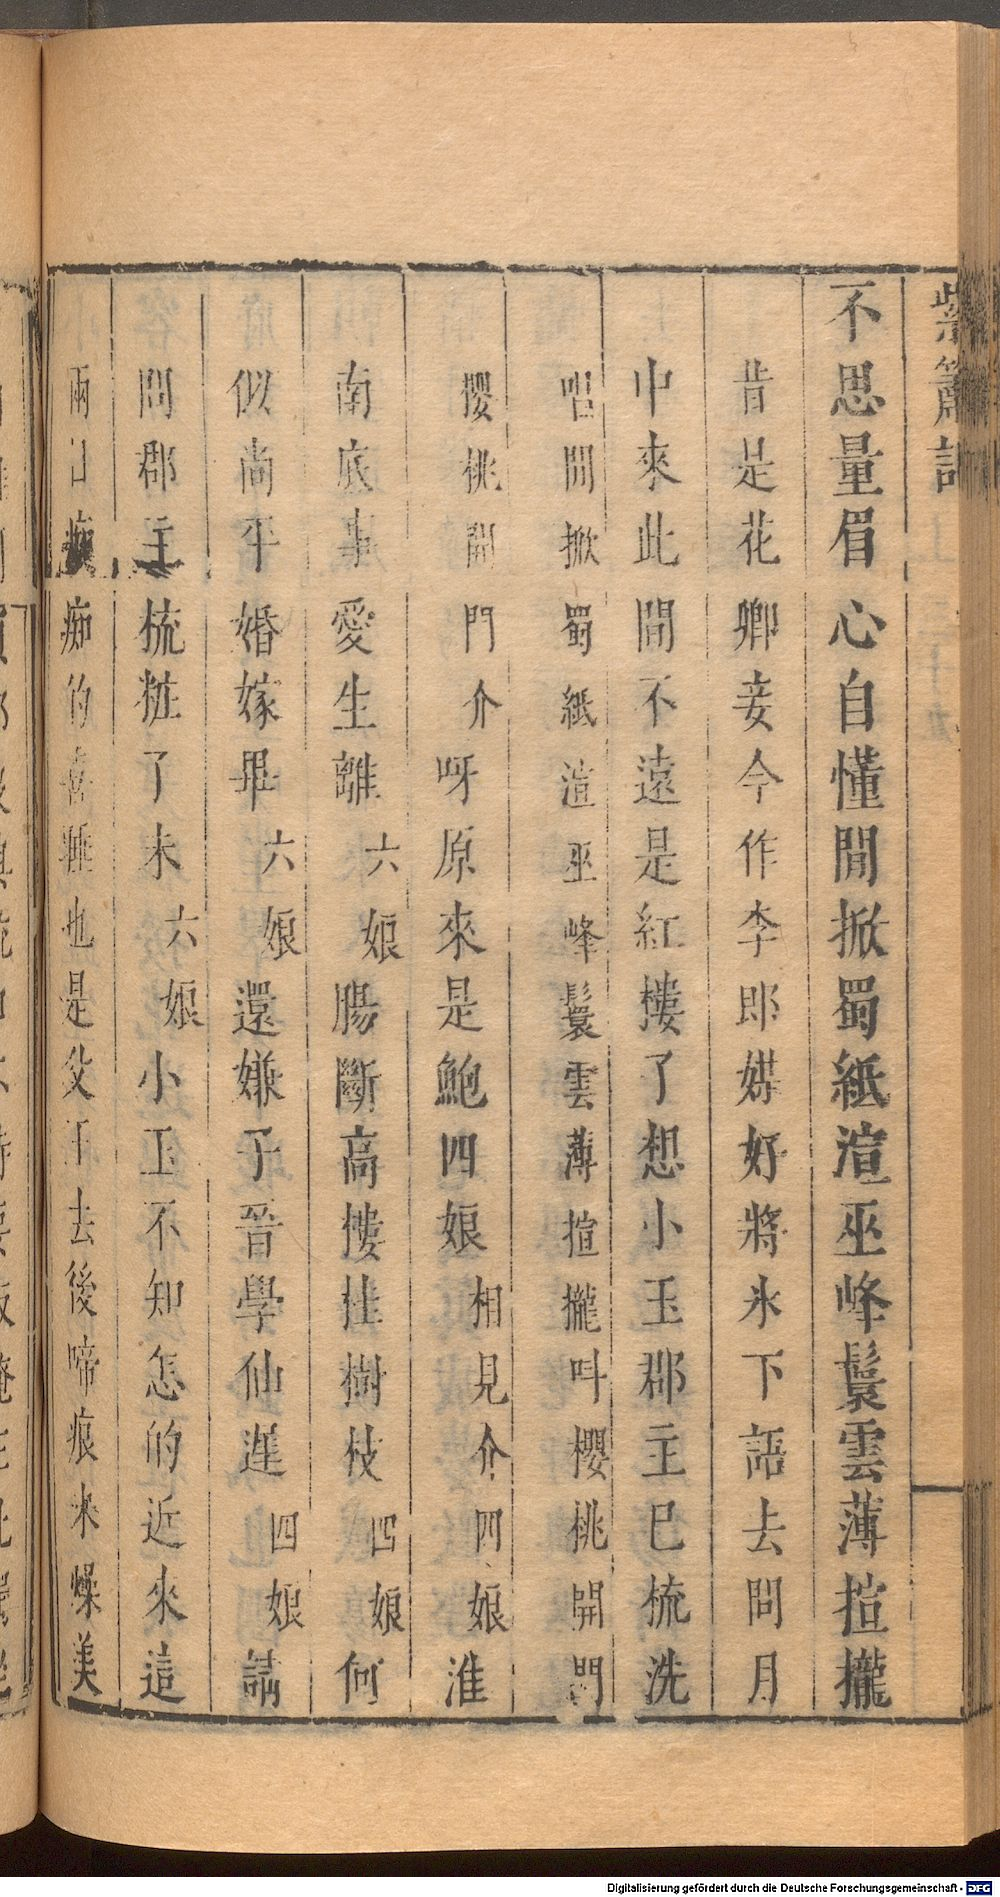 紫簫記
不思量眉心自懂閒掀蜀紙渲巫峰鬟雲薄揎攏
昔是花卿妾今作李郎媒好將氷下語去問月
中來此間不遠是紅樓了想小玉郡主已梳洗
唱閒掀蜀紙渲巫峰鬟雲薄揎攏叫櫻桃開門
櫻桃開門介呀原來是鮑四娘相見介四娘淮
南底事愛生離六娘腸斷高樓挂樹枝四娘何
似尚平婚嫁畢六娘還嫌子晉學仙遲四娘請
問郡主梳粧了未六娘小玉不知怎的近來這
兩日癡的喜睡也是父王去後啼痕未燥美
Digitalisierung gefördert durch die Deutsche Forschungsgemeinschaft - DFG